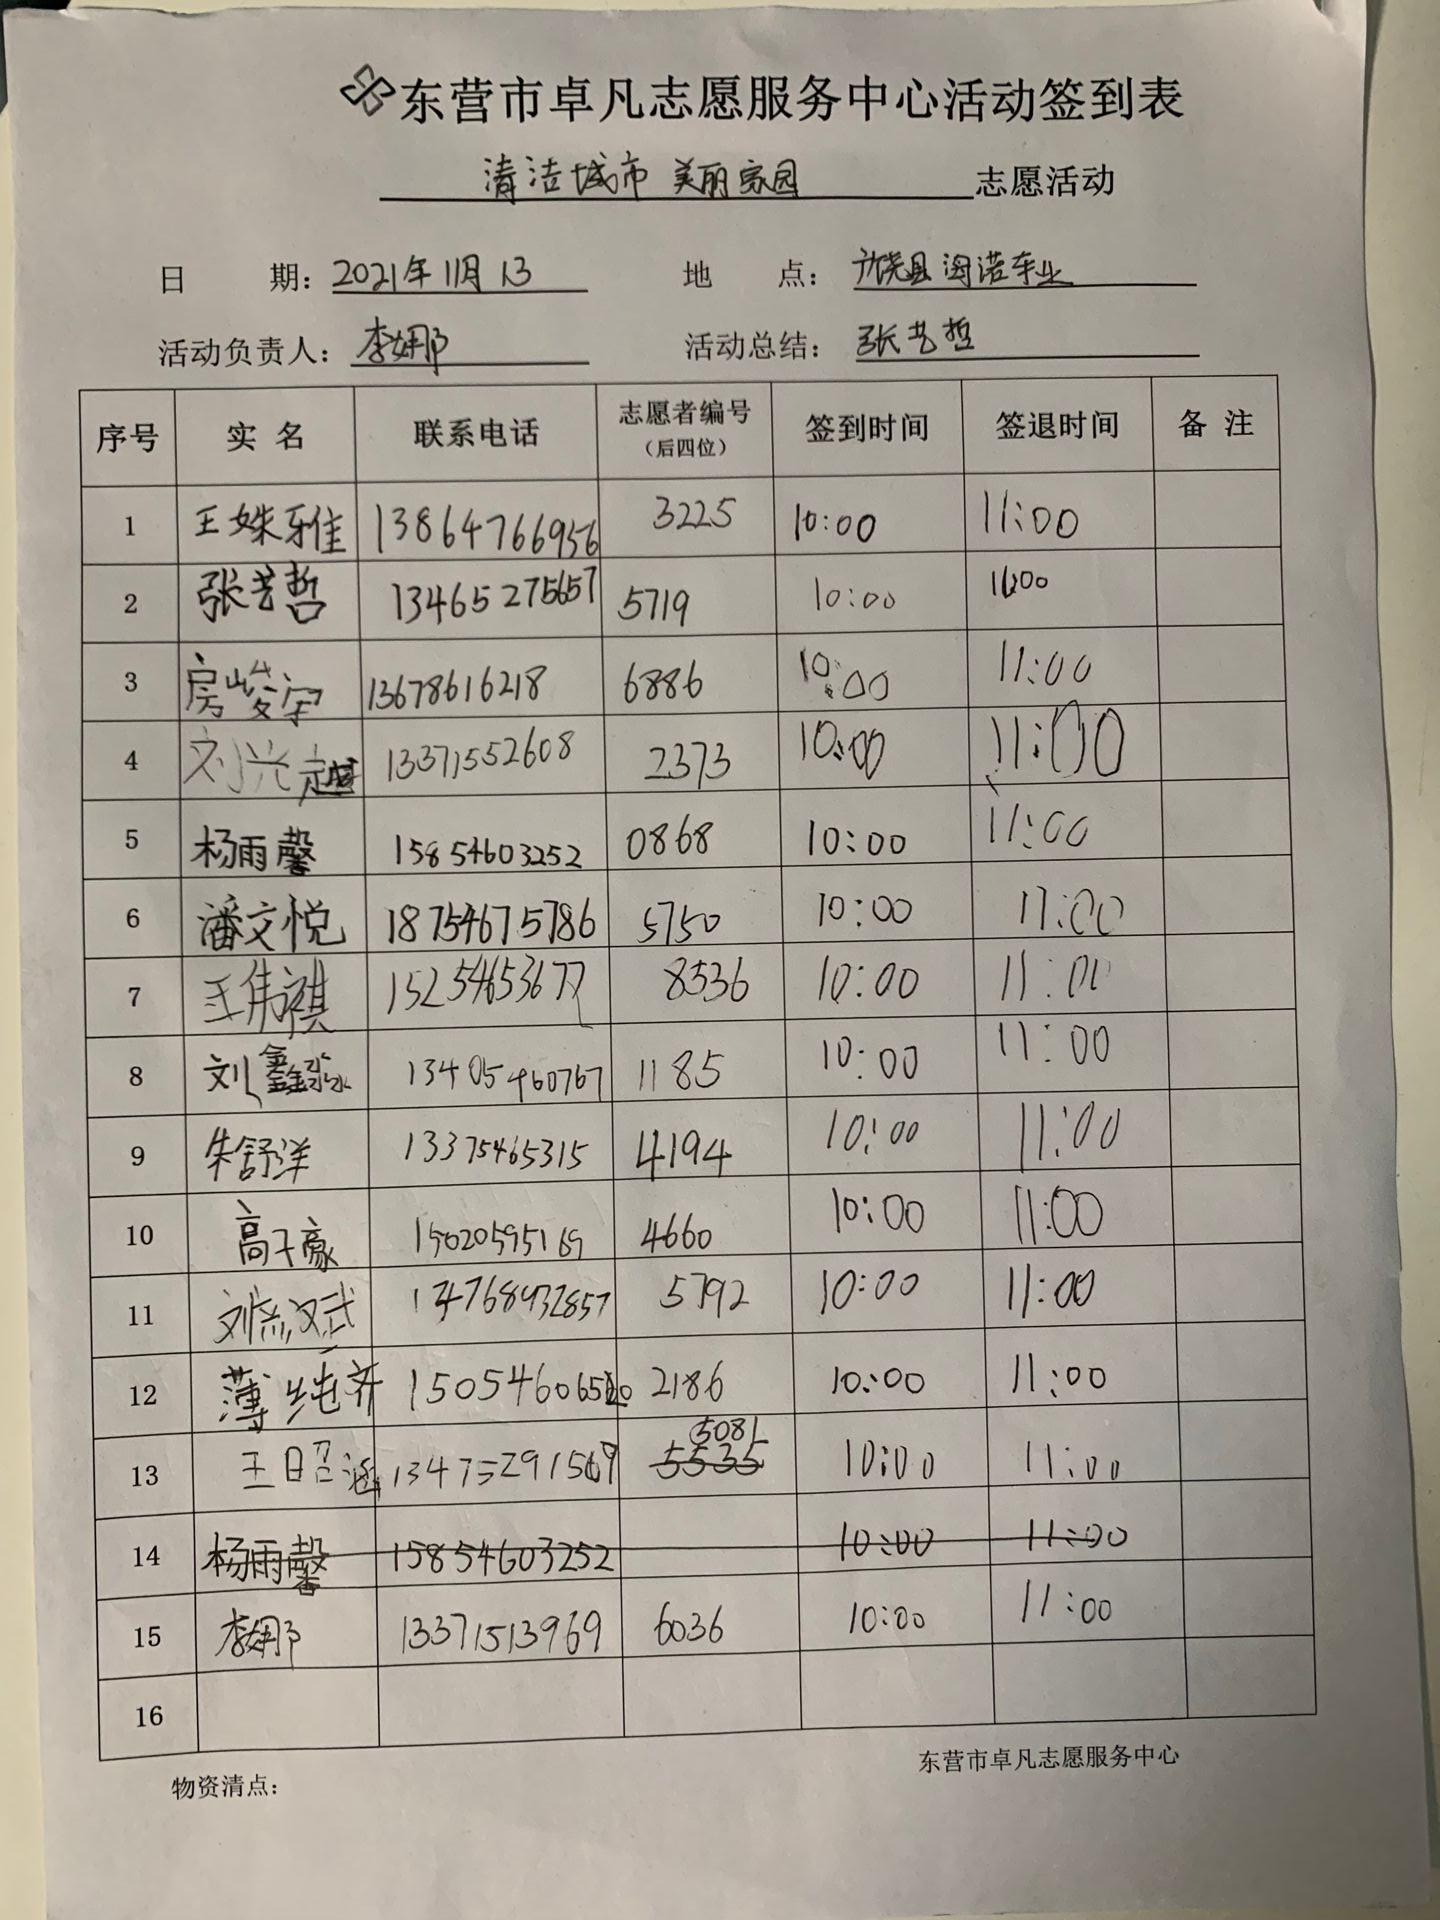 东营市卓凡志愿服务中心活动签到表
清洁城市 美丽家园 志愿活动
日 期: 2021年11月13 地 点: 广饶县 诺车业
活动负责人: 李娜 活动总结: 张艺哲
序号 实名 联系电话 志愿者编号(后四位) 签到时间 签退时间 备注
1 王姝雅 13864766956 3225 10:00 11:00
2 张艺哲 13465275657 5719 10:00 11:00
3 房峻宇 13678616218 6886 10:00 11:00
4 刘兴越 13371552608 2373 10:00 11:00
5 杨雨馨 15854603252 0868 10:00 11:00
6 潘文悦 18754675786 5750 10:00 11:00
7 王伟祺 15254653677 8536 10:00 11:00
8 刘鑫淼 13405460767 1185 10:00 11:00
9 朱舒洋 13375465315 4194 10:00 11:00
10 高子豪 15020595169 4660 10:00 11:00
11 刘 汉武 5792 10:00 11:00
12 薄纯齐 2186 10:00 11:00
13 王昭涵 13475291569 5535 5081 10:00 11:00
14 杨雨馨 15854603252 10:00 11:00
15 李娜 13371513969 6036 10:00 11:00
16
东营市卓凡志愿服务中心
物资清点: